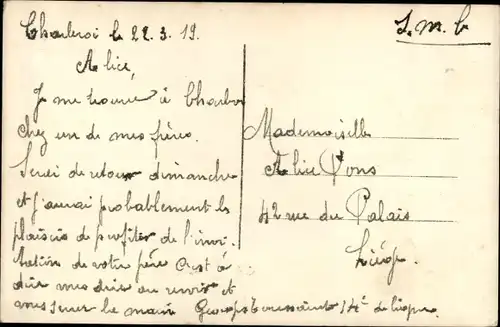 Charleroi le 22.3.19.
S.M.B
Alice,
Je me trouve à Charleroi
chez un de mes frères.
Serai de retour dimanche
et j'aurai probablement le
plaisir de profiter de l'invi-
tation de votre père c'est à
dire mes dire au revoir et
vous serrer la main Georges Toussaint 14e de ligne
Mademoiselle
Alice Pons
42 rue du Palais
Liége.